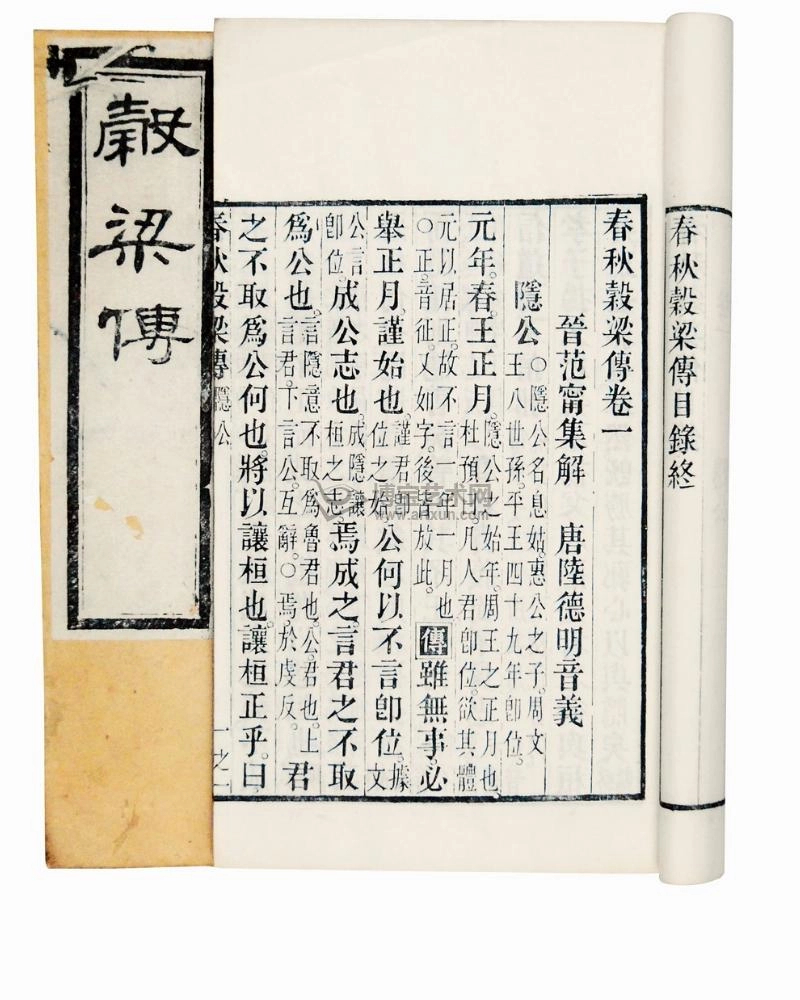 春秋穀梁傳目錄終
春秋穀梁傳卷一
晉范甯集解　唐陸德明音義
隱公○隱公名息姑。惠公之子。周文王八世孫。平王四十九年卽位。
元年。春。王正月。隱公之始年。周王之正月也。杜預曰。凡人君卽位。欲其體
元以居正。故不言一年一月也。○正。音征。又如字。後皆放此。傳雖無事。必
舉正月。謹始也。謹君卽位之始。公何以不言卽位。據文
公言卽位。成公志也。成隱讓桓之志。焉成之。言君之不取
爲公也。言隱意不取爲魯君也。公。君也。上言君。下言公。互辭。○焉。於虔反。君
之不取爲公何也。將以讓桓也。讓桓正乎。曰
春秋穀梁傳 隱公 一之一
穀梁傳
博宝艺术网
www.artxun.com